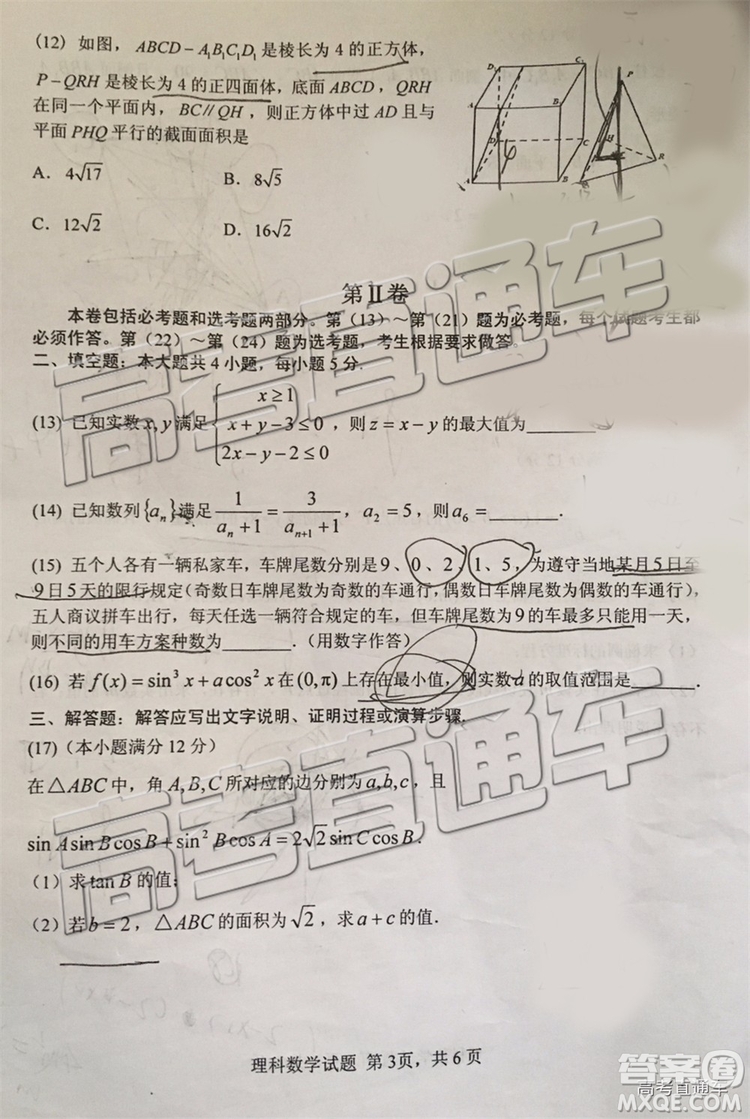 (12) 如图，ABCD－A₁B₁C₁D₁是棱长为 4 的正方体，
P－QRH 是棱长为 4 的正四面体，底面 ABCD，QRH
在同一个平面内，BC∥QH，则正方体中过 AD 且与
平面 PHQ 平行的截面面积是
A. 4√17 B. 8√5
C. 12√2 D. 16√2
第Ⅱ卷
本卷包括必考题和选考题两部分。第（13）～第（21）题为必考题，每个试题考生都
必须作答。第（22）～第（24）题为选考题，考生根据要求做答。
二、填空题：本大题共 4 小题，每小题 5 分.
(13) 已知实数 x, y 满足 { x≥1, x+y−3≤0, 2x−y−2≤0 ，则 z=x−y 的最大值为
(14) 已知数列{aₙ}满足 1/(aₙ+1) = 3/(aₙ₊₁+1)，a₂=5，则 a₆=
(15) 五个人各有一辆私家车，车牌尾数分别是 9、0、2、1、5，为遵守当地某月 5 日至
9 日 5 天的限行规定（奇数日车牌尾数为奇数的车通行，偶数日车牌尾数为偶数的车通行），
五人商议拼车出行，每天任选一辆符合规定的车，但车牌尾数为 9 的车最多只能用一天，
则不同的用车方案种数为 .（用数字作答）
(16) 若 f(x)=sin³x+acos²x 在(0,π)上存在最小值，则实数 a 的取值范围是 .
三、解答题：解答应写出文字说明、证明过程或演算步骤.
(17)(本小题满分 12 分)
在△ABC 中，角 A,B,C 所对应的边分别为 a,b,c，且
sin A sin B cos B + sin² B cos A = 2√2 sin C cos B.
(1) 求 tan B 的值；
(2) 若 b=2，△ABC 的面积为√2，求 a+c 的值.
理科数学试题 第 3页，共 6 页
高考直通车
高考直通车
答案圈
高考直通车
MXQE.COM